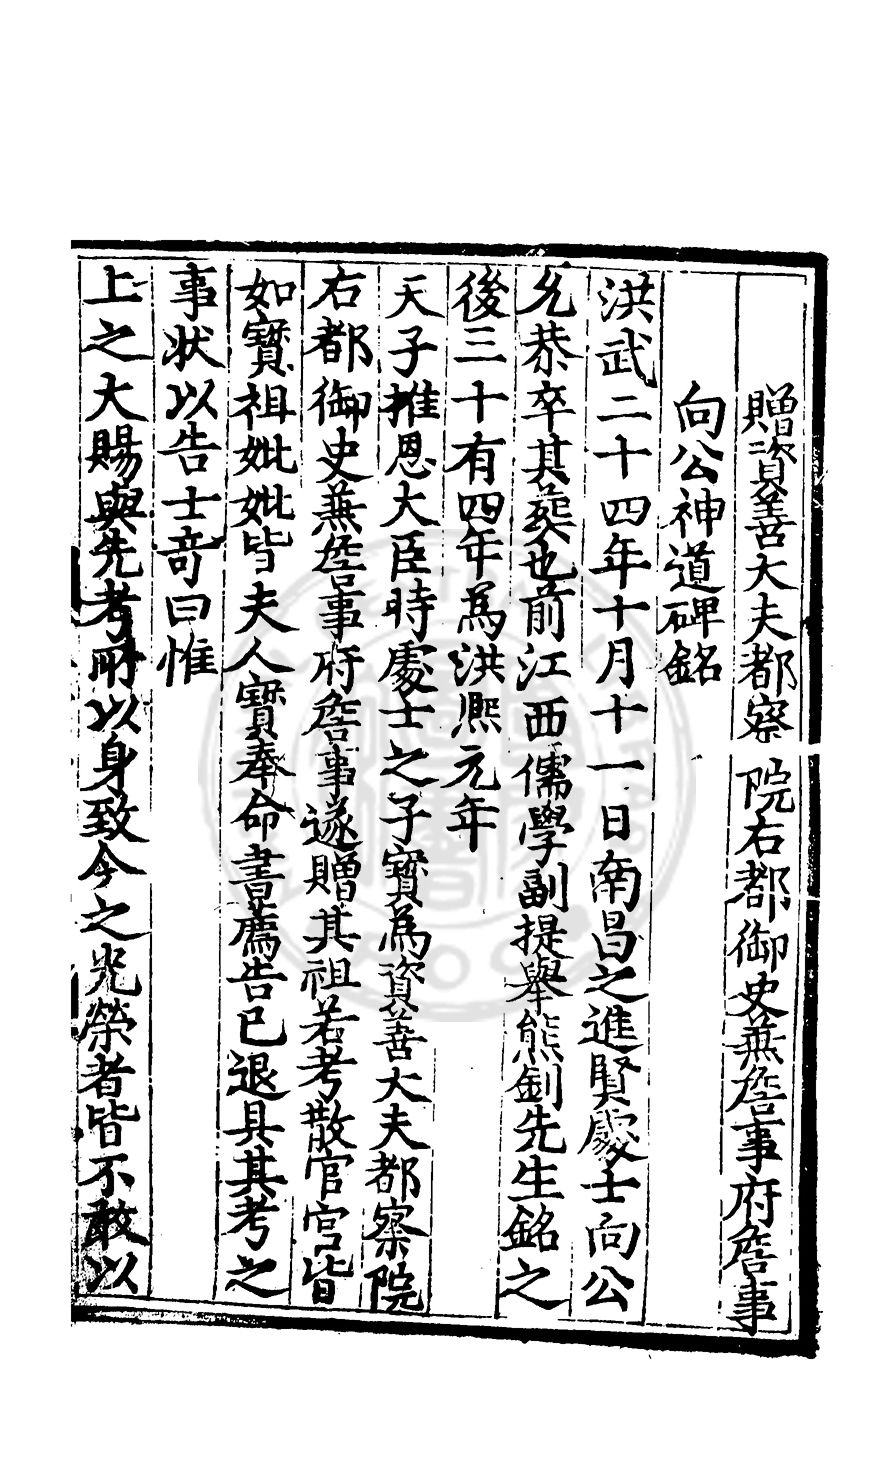 贈資善大夫都察院右都御史兼詹事府詹事
向公神道碑銘
洪武二十四年十月十一日南昌之進賢處士向公
允恭卒其葬也前江西儒學副提舉熊釗先生銘之
後三十有四年為洪熙元年
天子推恩大臣時處士之子寶為資善大夫都察院
右都御史兼詹事府詹事遂贈其祖若考散官官皆
如寶祖妣妣皆夫人寶奉命書薦告已退具其考之
事狀以告士竒曰惟
上之大賜與先考所以身致今之光榮者皆不敢以